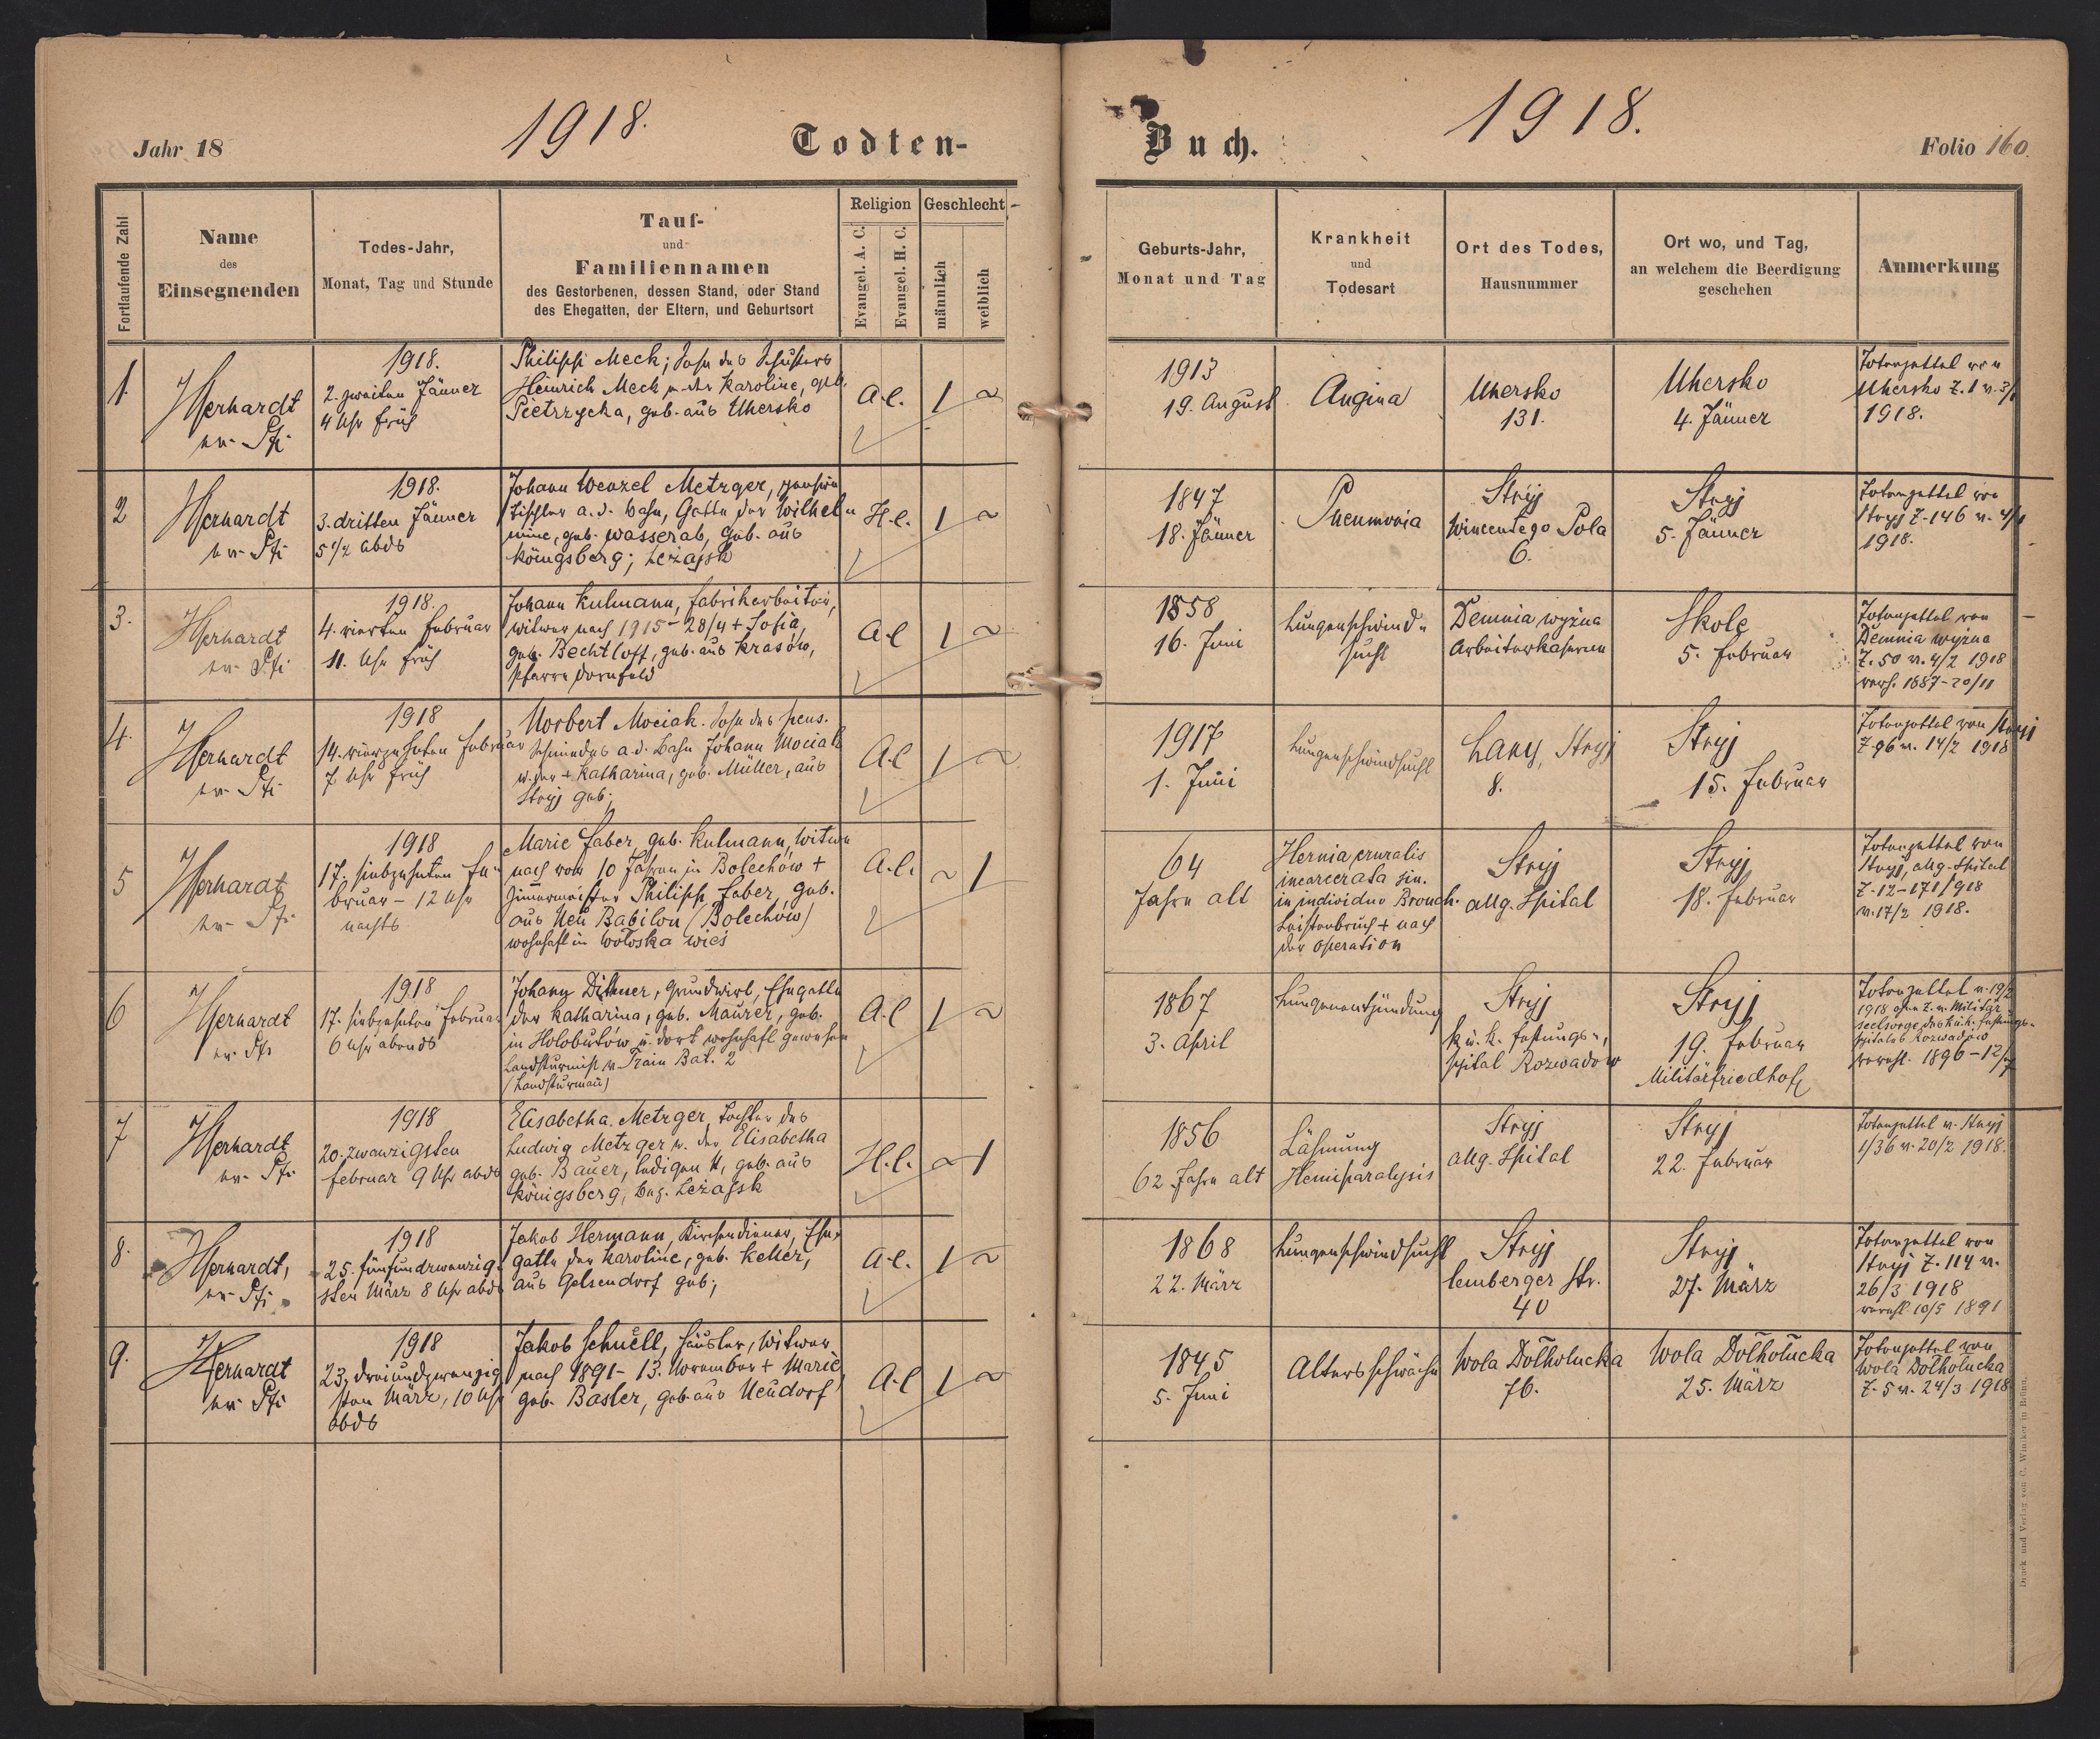 Jahr 18
1918.
Todten-
Fortlaufende Zahl
Name
des
Einsegnenden
Todes-Jahr,
Monat, Tag und Stunde
Tauf-
und
Familiennamen
des Gestorbenen, dessen Stand, oder Stand
des Ehegatten, der Eltern, und Geburtsort
Religion
Evangel. A. C.
Evangel. H. C.
Geschlecht
männlich
weiblich
1.
Herhardt
1918.
2. zweiten Jänner
4 Uhr früh
Philipp Meck; Sohn des Schusters
Heinrich Meck u. der Karoline, geb.
Pietrzycka, geb. aus Uhersko
A.C.
1
2
Herhardt
1918.
3. dritten Jänner
5 1/2 abds
Johann Wenzel Metzger, pension.
Tischler a. d. Bahn, Gatte der Wilhel-
mine, geb. Wasserab, geb. aus
Königsberg; Leżajsk
H.C.
1
3.
Herhardt
1918.
4. vierten Februar
11. Uhr früh
Johann Kulmann, Fabrikarbeiter,
Witwer nach 1915 - 28/4 + Sofia,
geb. Bechtloff, geb. aus Krasów,
Pfarre Dornfeld
A.C
1
4.
Herhardt
1918
14. vierzehnten Februar
7 Uhr früh
Norbert Mociak. Sohn des pens.
Schmiedes a. d. Bahn Johann Mociak
u. der + Katharina, geb. Müller, aus
Stryj geb;
A.C
1
5
Herhardt
1918
17. siebzehnten Fe-
bruar - 12 Uhr
nachts
Marie Faber, geb. Kulmann, Witwe
nach vor 10 Jahren in Bolechów +
Zimmermeister Philipp Faber, geb.
aus Neu Babilon (Bolechów)
wohnhaft in Wołoska wieś
A.C.
1
6
Herhardt
1918
17. siebzehnten Februar
6 Uhr abends
Johann Dittmer, Grundwirt, Ehegatte
der Katharina, geb. Maurer, geb.
in Hołobutów u. dort wohnhaft gewesen
Landsturmist Train Bat. 2
(Landsturmman)
A.C
1
7
Herhardt
1918
20. zwanzigsten
Februar 9 Uhr abds
Elisabetha Metzger, Tochter des
Ludwig Metzger u. der Elisabetha
geb. Bauer, ledigen St, geb. aus
Königsberg, Bez. Leżajsk
H.C.
1
8.
Herhardt,
1918
25. fünfundzwanzig-
sten März 8 Uhr abds
Jakob Hermann, Kirchendiener, Ehe-
gatte der Karoline, geb. Keller,
aus Gelsendorf geb;
A.C.
1
9.
Herhardt
1918
23. dreiundzwanzig
sten März, 10 Uhr
abds
Jakob Schnell, Häusler, Witwer
nach 1891 - 13. November + Marie
geb. Basler, geb. aus Neudorf
A.C
1
Buch.
1918.
Folio 160.
Geburts-Jahr,
Monat und Tag
Krankheit
und
Todesart
Ort des Todes,
Hausnummer
Ort wo, und Tag,
an welchem die Beerdigung
geschehen
Anmerkung
1913
19. August
Angina
Uhersko
131.
Uhersko
4. Jänner
Totenzettel von
Uhersko Z. 1 v. 3/1
1918.
1847
18. Jänner
Pneumonia
Stryj
Wincentego Pola
6.
Stryj
5. Jänner
Totenzettel von
Stryj Z. 146 v. 4/1
1918.
1858
16. Juni
Lungenschwind-
sucht
Demnia wyżna
Arbeiterkasernen
Skole
5. Februar
Totenzettel von
Demnia wyżna
Z. 50 v. 4/2 1918
verh. 1887 - 20/11
1917
1. Juni
Lungenschwindsucht
Łany, Stryj
8.
Stryj
15. Februar
Totenzettel von Stryj
Z. 96 v. 14/2 1918
64
Jahre alt
Hernia cruralis
incarcerata sin.
in individuo Bronch.
Leistenbruch + nach
der Operation
Stryj
allg. Spital
Stryj
18. Februar
Totenzettel von
Stryj, allg. Spital
Z. 12-171/918
v. 17/2 1918.
1867
3. April
Lungenentzündung
Stryj
k. u. k. Festungs-,
spital Rozwadow
Stryj
19. Februar
Militärfriedhof
Totenzettel v. 19/2
1918 ohne Z. v. Militär
seelsorge des k.u.k. Festungs-
spitals Rozwadow
verehl. 1896 - 12/7
1856
62 Jahre alt
Lähmung
Hemiparalysis
Stryj
allg. Spital
Stryj
22. Februar
Totenzettel v. Stryj
1/36 v. 20/2 1918.
1868
22. März
Lungenschwindsucht
Stryj
Lemberger Str.
40
Stryj
27. März
Totenzettel von
Stryj Z. 114 v.
26/3 1918
verehl. 10/5 1891
1845
5. Juni
Altersschwäche
Wola Dołhołucka
76.
Wola Dołhołucka
25. März
Totenzettel von
Wola Dołhołucka
Z. 5 v. 24/3 1918
Druck und Verlag von C. Winiker in Brünn.